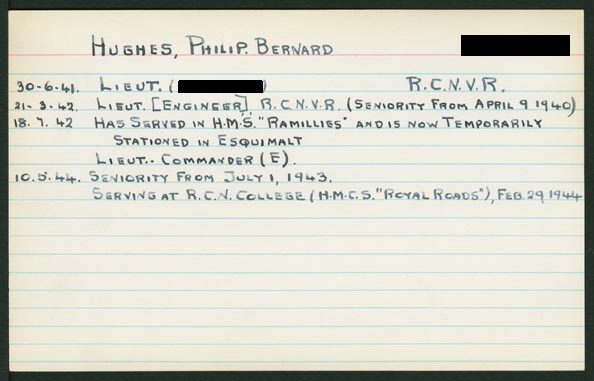 HUGHES, PHILIP. BERNARD
30-6-41. LIEUT. ( ) R.C.N.V.R.
21-3-42. LIEUT. [ENGINEER]. R.C.N.V.R. (SENIORITY FROM APRIL 9 1940)
18.7.42 HAS SERVED IN H.M.S. "RAMILLIES" AND IS NOW TEMPORARILY
STATIONED IN ESQUIMALT
LIEUT.. COMMANDER (E).
10.5.44. SENIORITY FROM JULY 1, 1943.
SERVING AT R.C.N. COLLEGE (H.M.C.S. "ROYAL ROADS"), FEB. 29, 1944